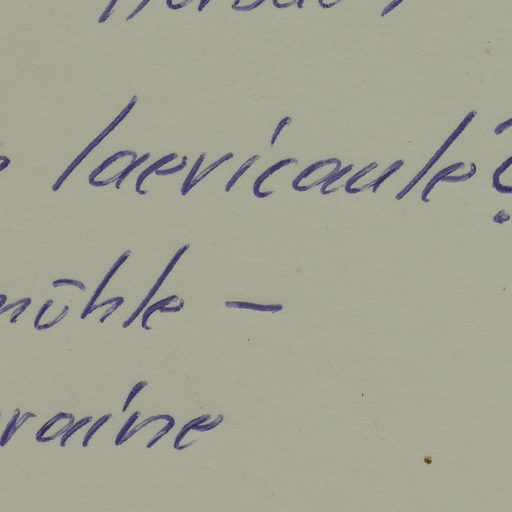 laevicaule?
mühle –
raine